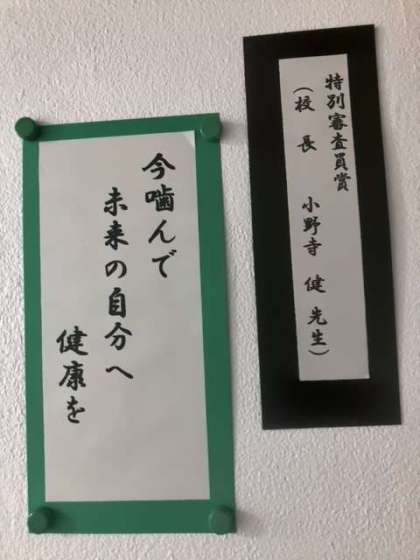 特別審査員賞
（校長 小野寺 健 先生）
今噛んで
未来の自分へ
健康を